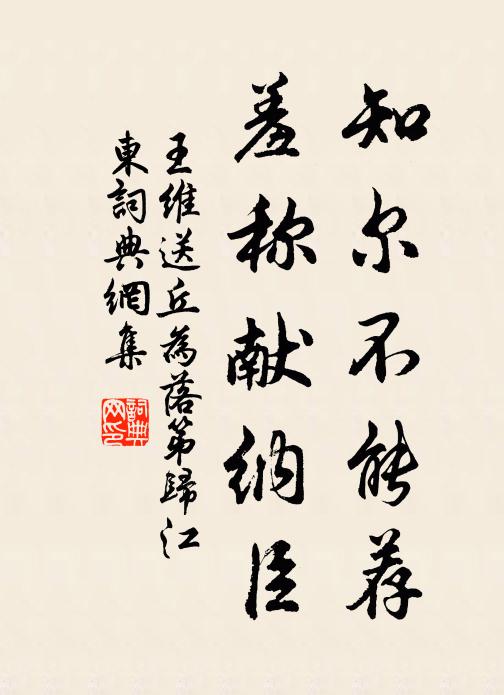 知尔不能荐
羞称献纳臣
王维送丘為落第歸江
東詞典網集
詞典
网印